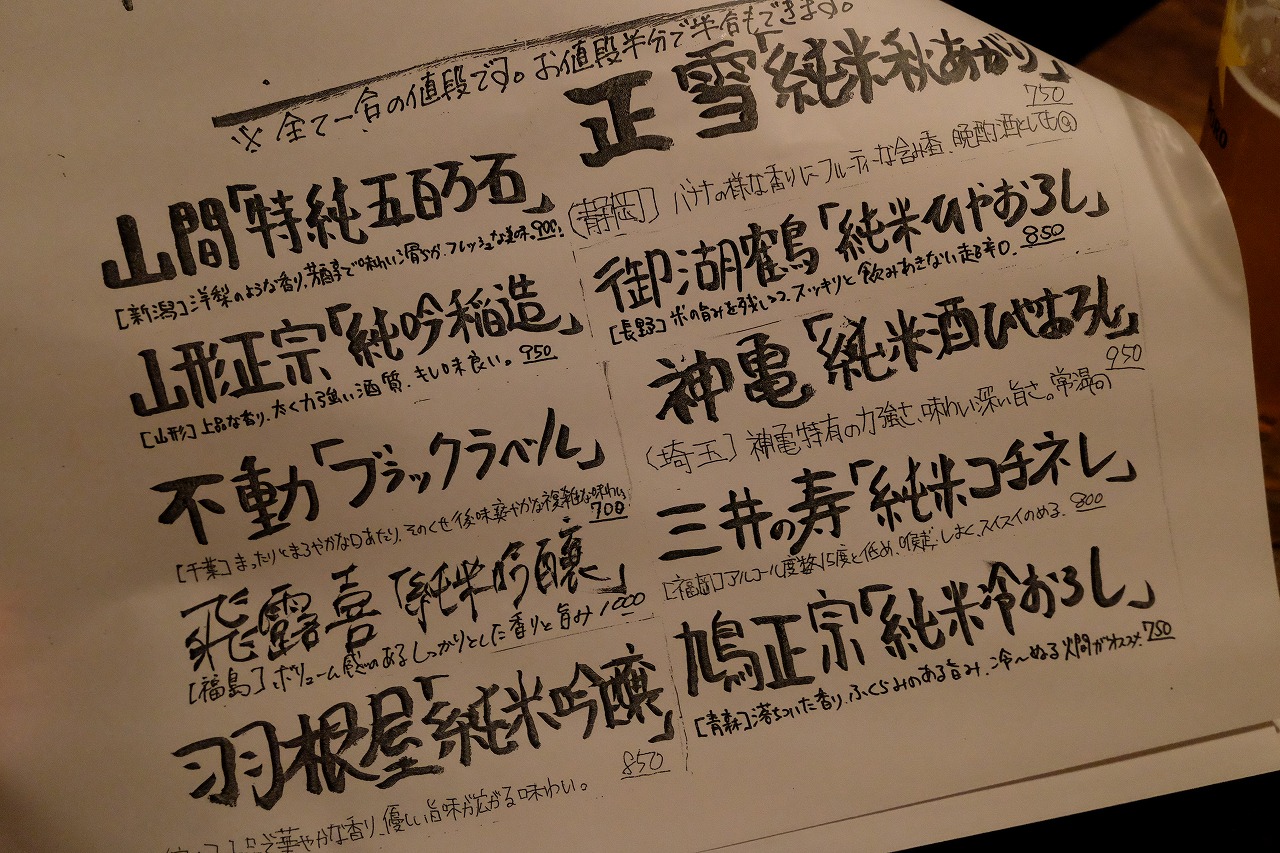 ※ 全て一合の値段です。お値段半分で半合もできます。
山間「特純五百万石」
[新潟] 洋梨のような香り、芳醇で味わい滑らか、フレッシュな美味。900
山形正宗「純吟稲造」
[山形] 上品な香り、太く力強い酒質、キレ味良い。 950
不動「ブラックラベル」
[千葉] まったりとまろやかな口あたり、そのくせ後味爽やかな複雑な味わい
700
飛露喜「純米吟醸」
[福島] ボリューム感のあるしっかりとした香りと旨み 1000
羽根屋「純米吟醸」
850
華やかな香り、優しい旨味が広がる味わい。
正雪「純米秋あがり」
750
(静岡] バナナの様な香りにフルーティーな含み香、晩酌酒としても
御湖鶴「純米ひやおろし」
[長野] 米の旨みを残しつつ、スッキリと飲みあきない超辛口。 850
神亀「純米酒ひやおろし」
950
(埼玉] 神亀特有の力強さ、味わい深い旨さ。常温
三井の寿「純米コチネレ」
[福岡] アルコール度数15度と低め、スイスイのめる。 800
鳩正宗「純米冷おろし」
[青森] 落ちついた香り、ふくらみのある旨み、冷〜ぬる火間がオススメ。750